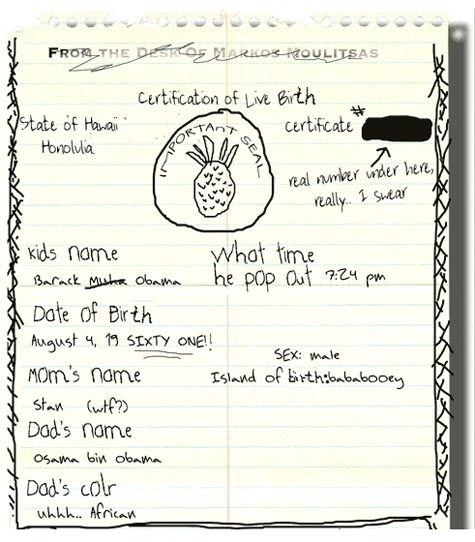 FROM THE DESK OF MARKOS MOULITSAS
Certification of Live Birth
State of Hawaii
Honolulia
IMPORTANT SEAL
certificate #
real number under here,
really.. I swear
kids name
Barack Muha Obama
What time
he pop out 7:24 pm
Date of Birth
August 4, 19 SIXTY ONE!!
SEX: male
Mom's name
Island of birth:bababooey
Stan (wtf?)
Dad's name
Osama bin Obama
Dad's colr
uhhh.. African